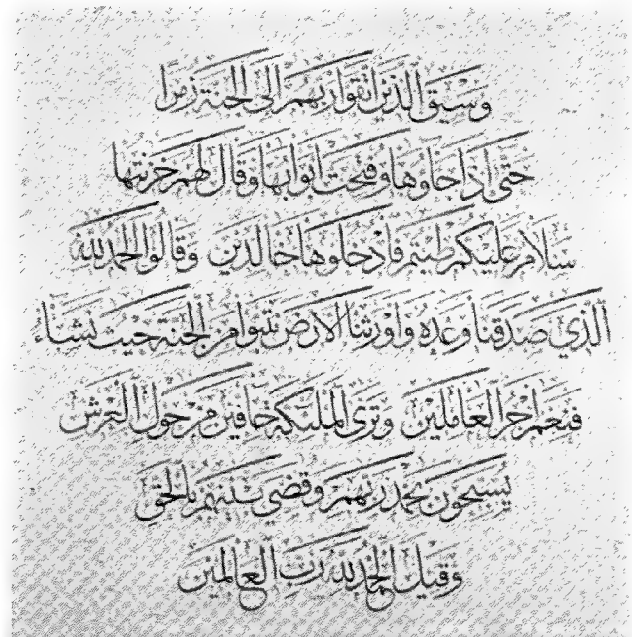 وسيق الذين اتقوا ربهم إلى الجنة زمرا
حتى إذا جاؤوها وفتحت أبوابها وقال لهم خزنتها
سلام عليكم طبتم فادخلوها خالدين وقالوا الحمد لله
الذي صدقنا وعده وأورثنا الأرض نتبوأ من الجنة حيث نشاء
فنعم أجر العاملين وترى الملائكة حافين من حول العرش
يسبحون بحمد ربهم وقضي بينهم بالحق
وقيل الحمد لله رب العالمين